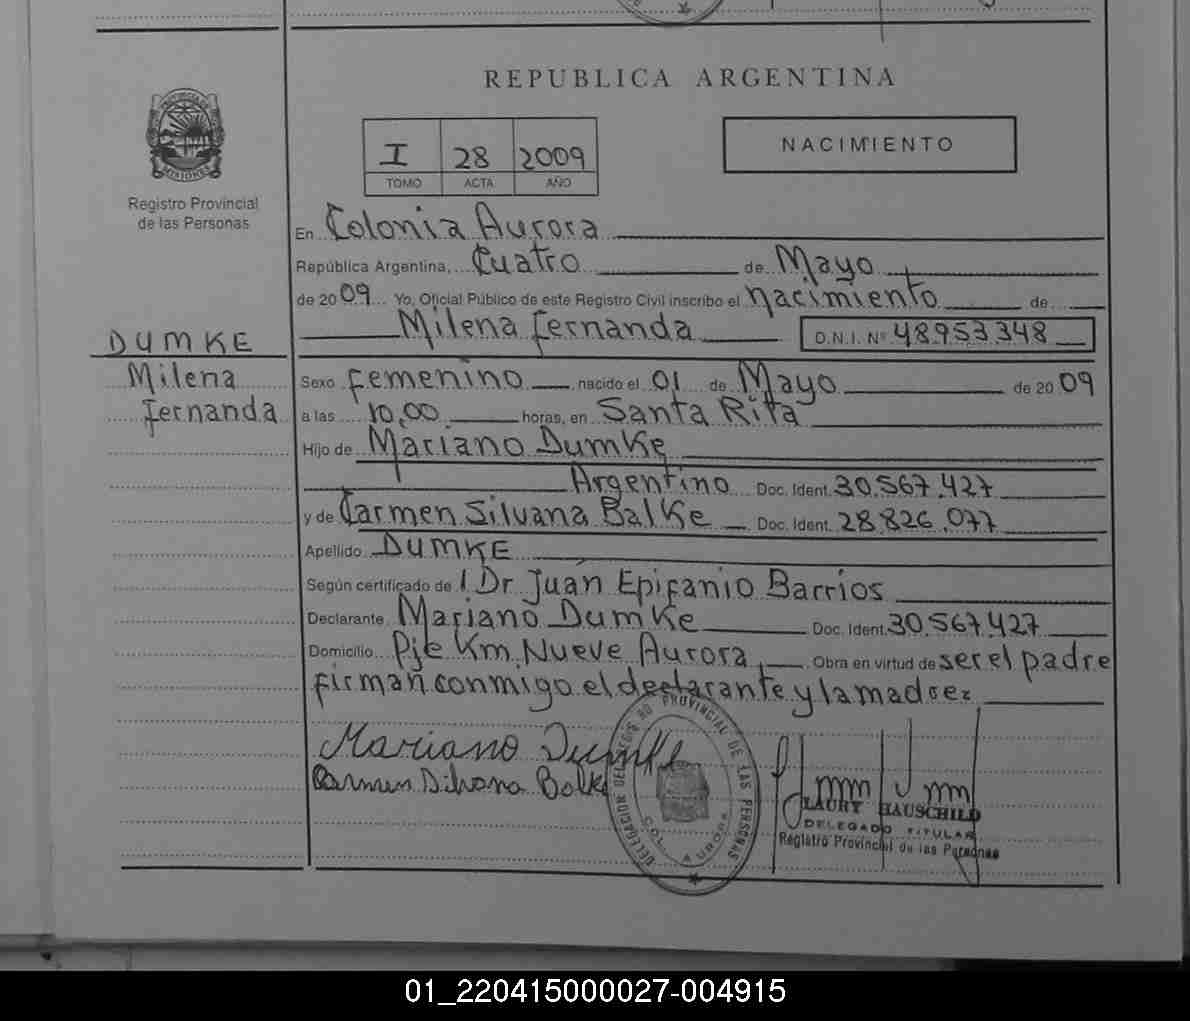 REPUBLICA ARGENTINA
PROVINCIA DE
MISIONES
Registro Provincial
de las Personas
I 28 2009
TOMO ACTA AÑO
NACIMIENTO
En Colonia Aurora
República Argentina, Cuatro de Mayo
de 2009 Yo, Oficial Público de este Registro Civil inscribo el nacimiento de
Milena Fernanda D.N.I. Nº 48.953.348
DUMKE
Milena
Fernanda
Sexo femenino nacido el 01 de Mayo de 2009
a las 10,00 horas, en Santa Rita
Hijo de Mariano Dumke
Argentino Doc. Ident. 30.567.427
y de Carmen Silvana Balke Doc. Ident. 28.826.077
Apellido DUMKE
Según certificado de 1 Dr Juan Epifanio Barrios
Declarante Mariano Dumke Doc. Ident. 30.567.427
Domicilio Pje Km. Nueve Aurora, Obra en virtud de ser el padre
firman conmigo el declarante y la madre
Mariano Dumke
Carmen Silvana Balke
DELEGACION DEL REGISTRO PROVINCIAL DE LAS PERSONAS
COL. AURORA
LAURY HAUSCHILD
DELEGADO TITULAR
Registro Provincial de las Personas
01_220415000027-004915